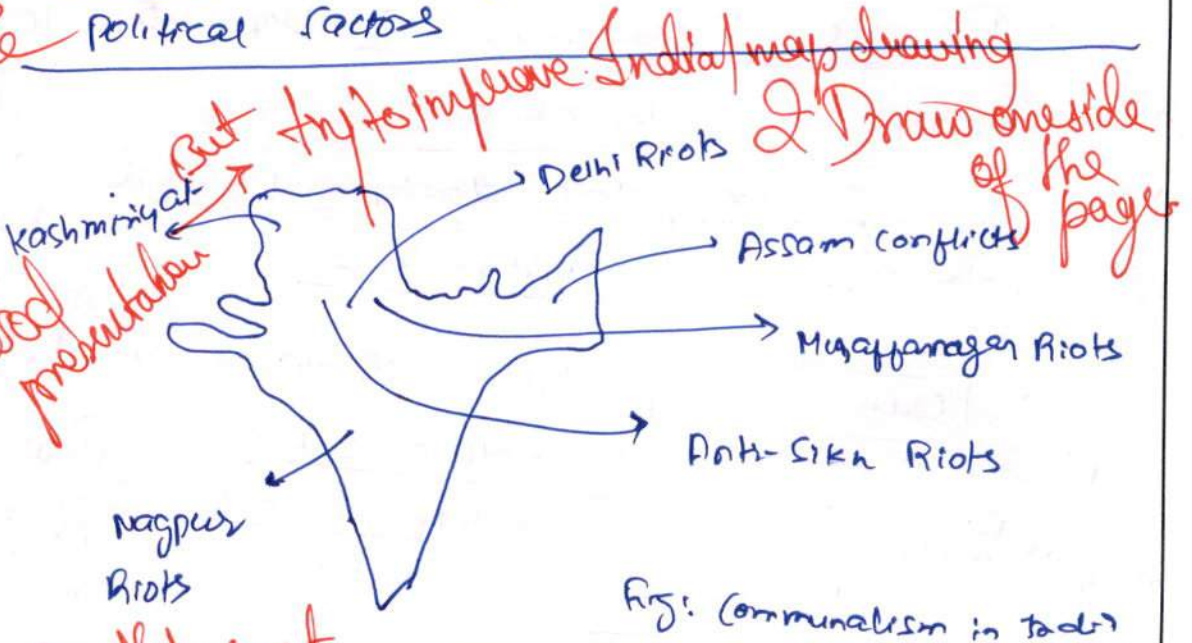 Political factors
But try to improve India map drawing
& Draw one side
of the
page
Delhi Riots
Kashmiriyat
presentation
Assam conflicts
Muzaffarnagar Riots
Anti-Sikh Riots
Nagpur
Riots
Fig: Communalism in India